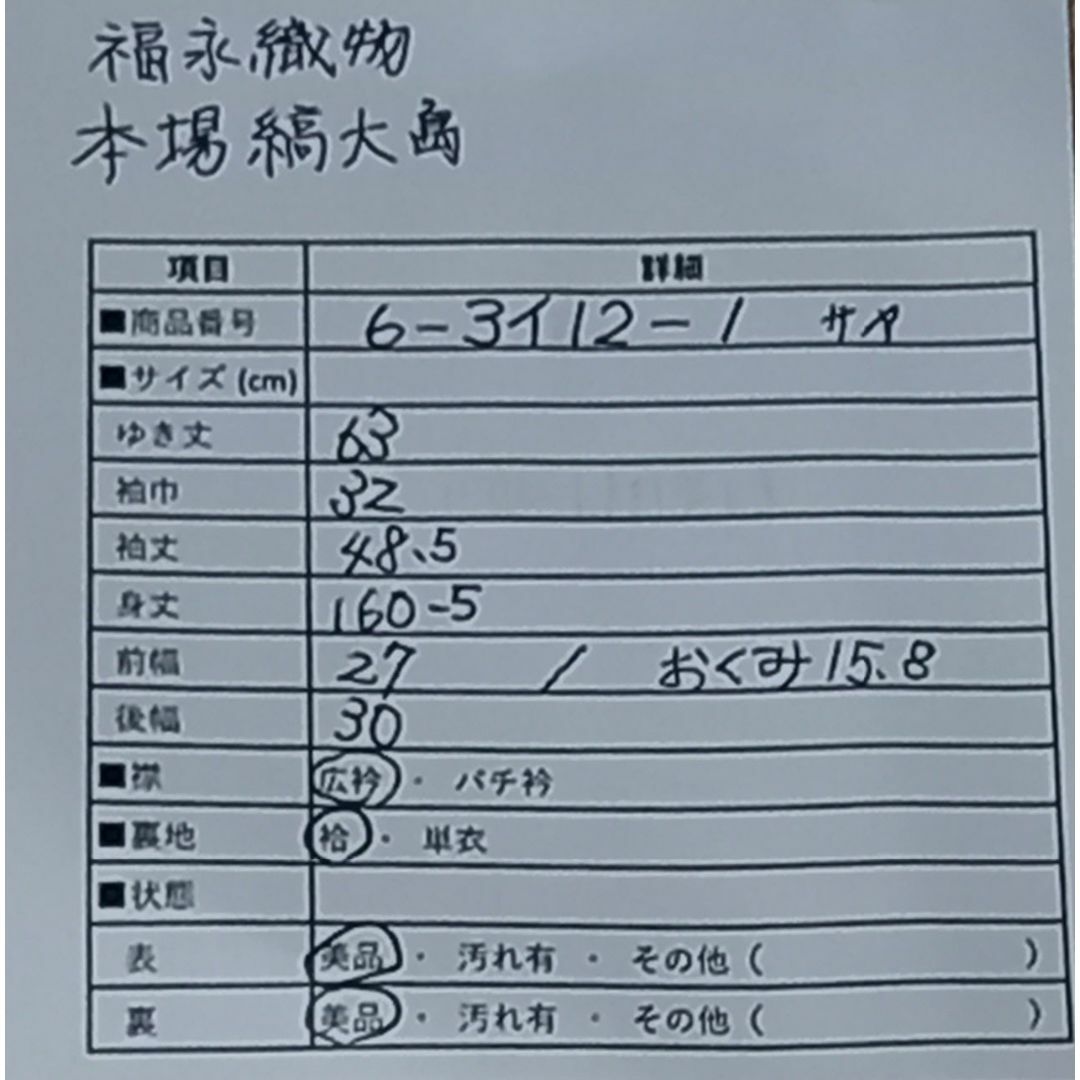 福永織物
本場縞大島
項目 詳細
■商品番号 6-3イ12-1 サヤ
■サイズ(cm)
ゆき丈 63
袖巾 32
袖丈 48.5
身丈 160-5
前幅 27 / おくみ15.8
後幅 30
■襟 広衿・バチ衿
■裏地 袷・単衣
■状態
表 美品・汚れ有・その他( )
裏 美品・汚れ有・その他( )